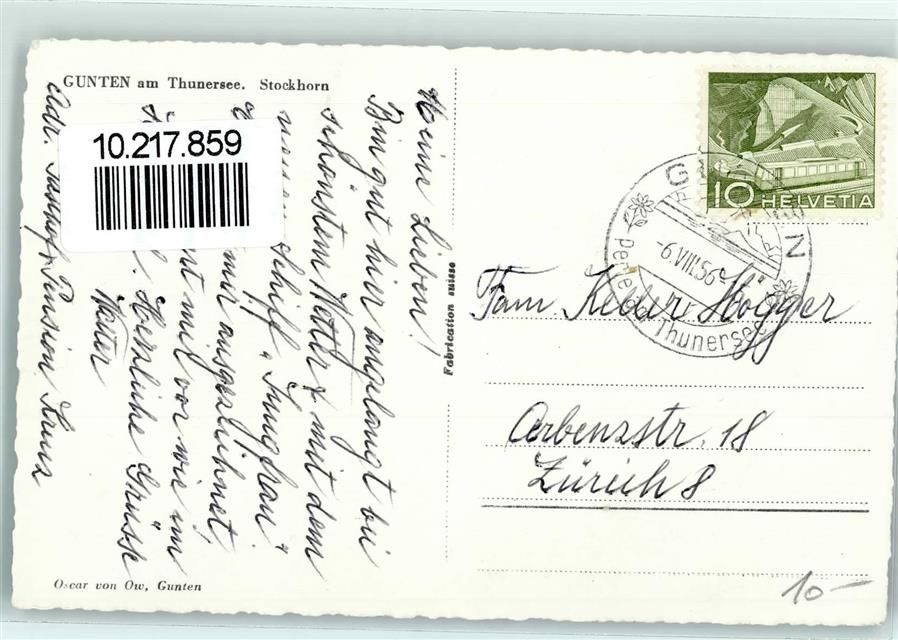 GUNTEN am Thunersee. Stockhorn
10.217.859
Meine Lieben!
Bin gut hier angelangt bei
schönstem Wetter & mit dem
neuen Schiff "Jungfrau"
mir ausgezeichnet
mit vor wir im
Herzliche Grüsse
Adr. Gasthof Pension Kreuz
Fabrication suisse
Oscar von Ow, Gunten
10 HELVETIA
GUNTEN
-6.VIII.56
Perle am Thunersee
Fam. Keller-Hogger
Arbenzstr. 18
Zürich 8
10-